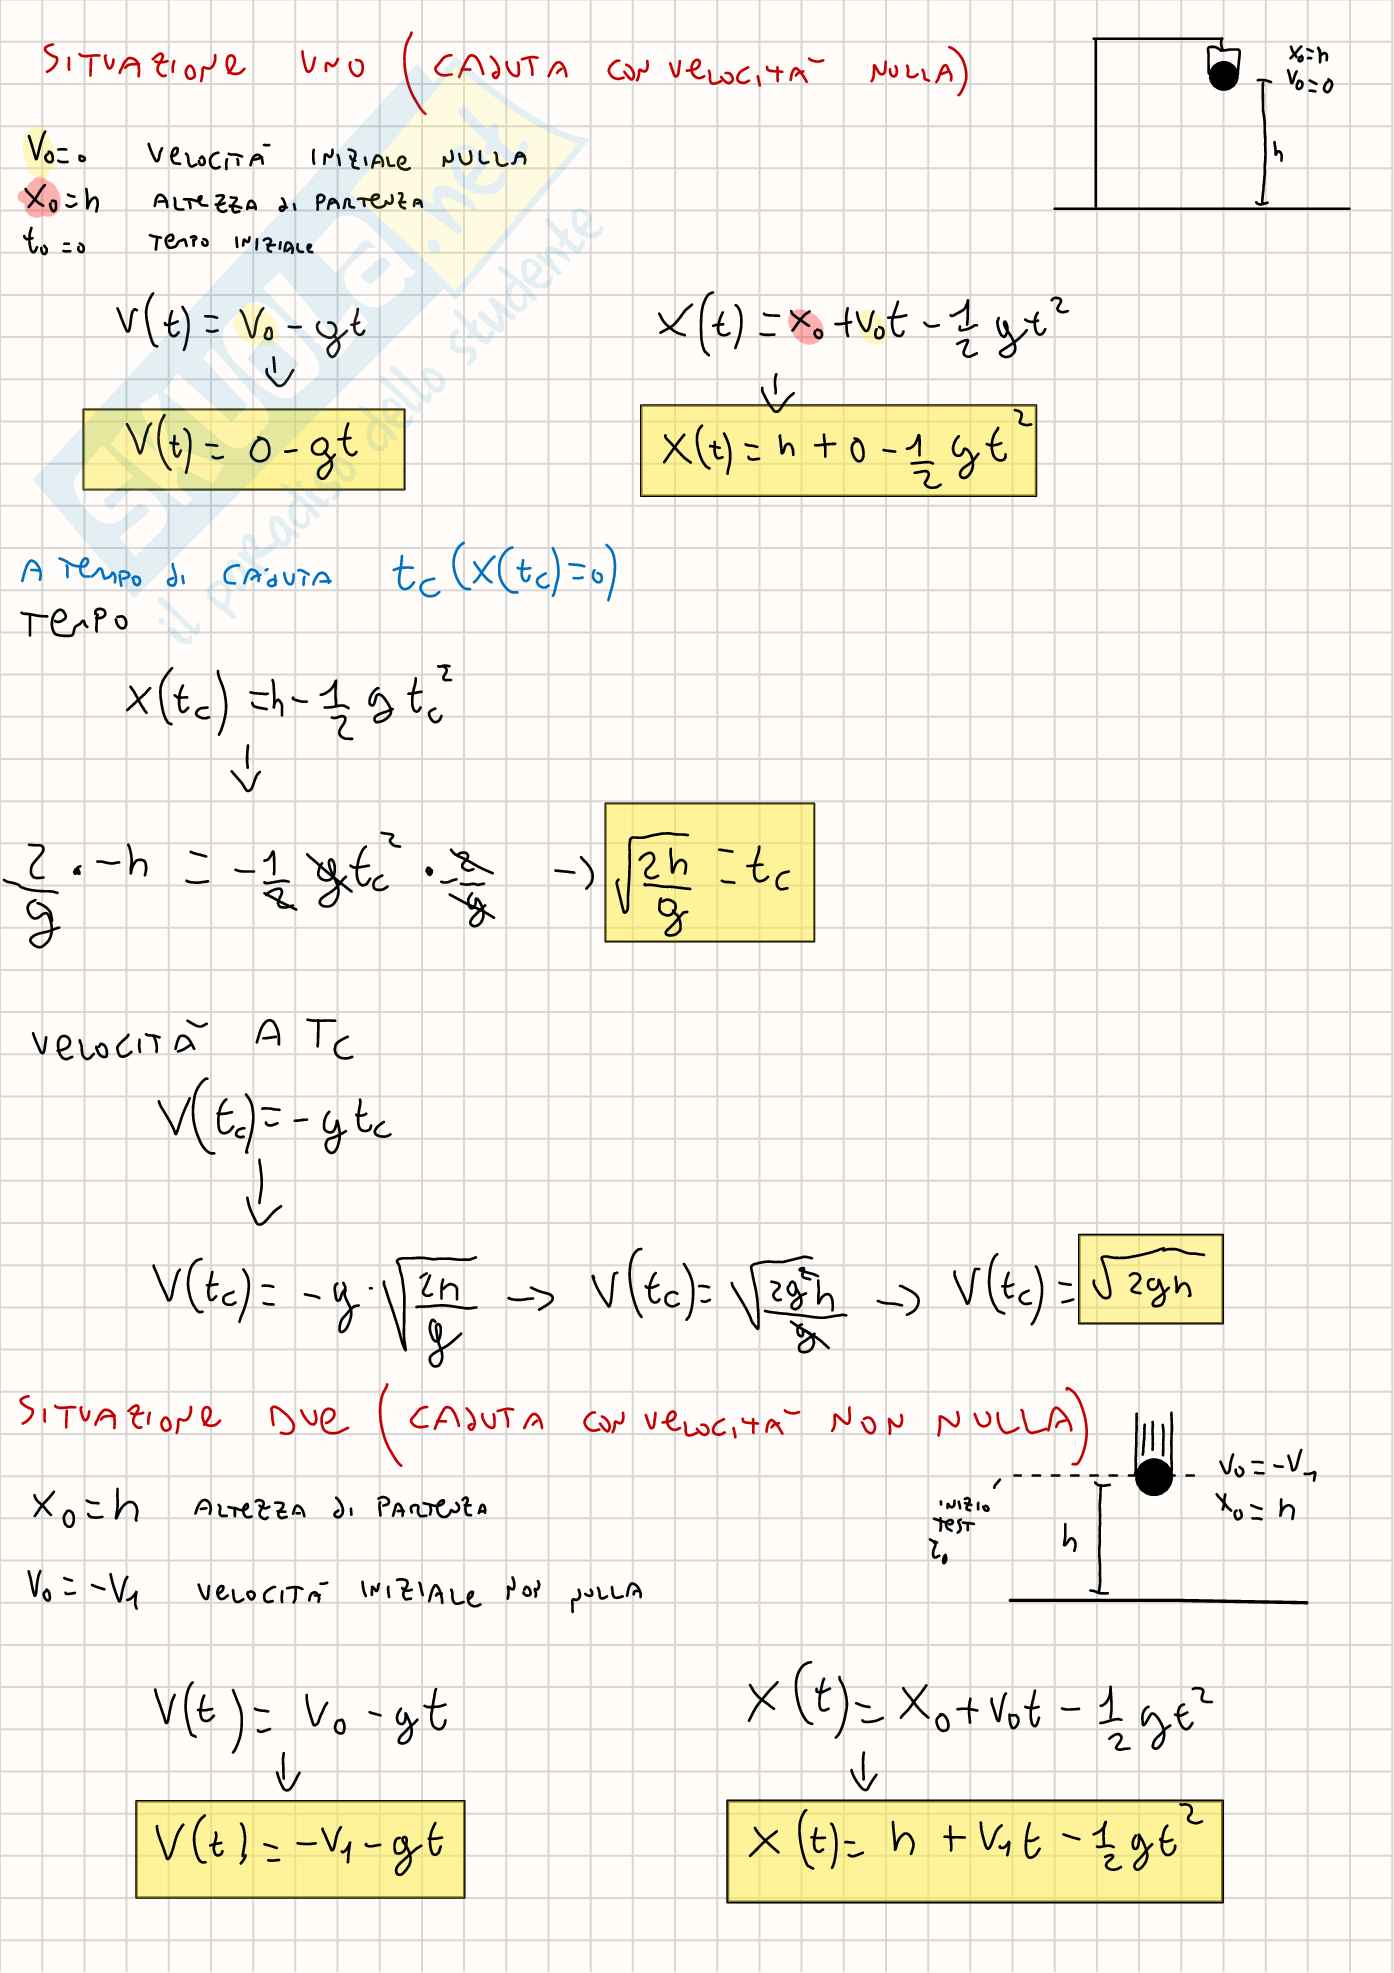 SITUAZIONE UNO (CADUTA CON VELOCITÀ NULLA)
x₀=h
V₀=0
h
V₀=0 VELOCITÀ INIZIALE NULLA
X₀=h ALTEZZA DI PARTENZA
t₀=0 TEMPO INIZIALE
V(t) = V₀ - gt
X(t) = x₀ + v₀t - 1/2 gt²
↓
↓
V(t) = 0 - gt
X(t) = h + 0 - 1/2 gt²
A TEMPO DI CADUTA t_c (X(t_c)=0)
TEMPO
X(t_c) = h - 1/2 g t_c²
↓
2/g · -h = -1/2 g t_c² · 2/-g → √(2h/g) = t_c
VELOCITÀ A T_C
V(t_c) = - g t_c
↓
V(t_c) = -g · √(2h/g) → V(t_c) = √(2g²h/g) → V(t_c) = √(2gh)
SITUAZIONE DUE (CADUTA CON VELOCITÀ NON NULLA)
V₀ = -V₁
X₀ = h
INIZIO
TEST
h
X₀ = h ALTEZZA DI PARTENZA
V₀ = -V₁ VELOCITÀ INIZIALE NON NULLA
V(t) = V₀ - gt
X(t) = X₀ + V₀t - 1/2 gt²
↓
↓
V(t) = -V₁ - gt
X(t) = h + V₁t - 1/2 gt²
SKUOLA.net
il paradiso dello studente